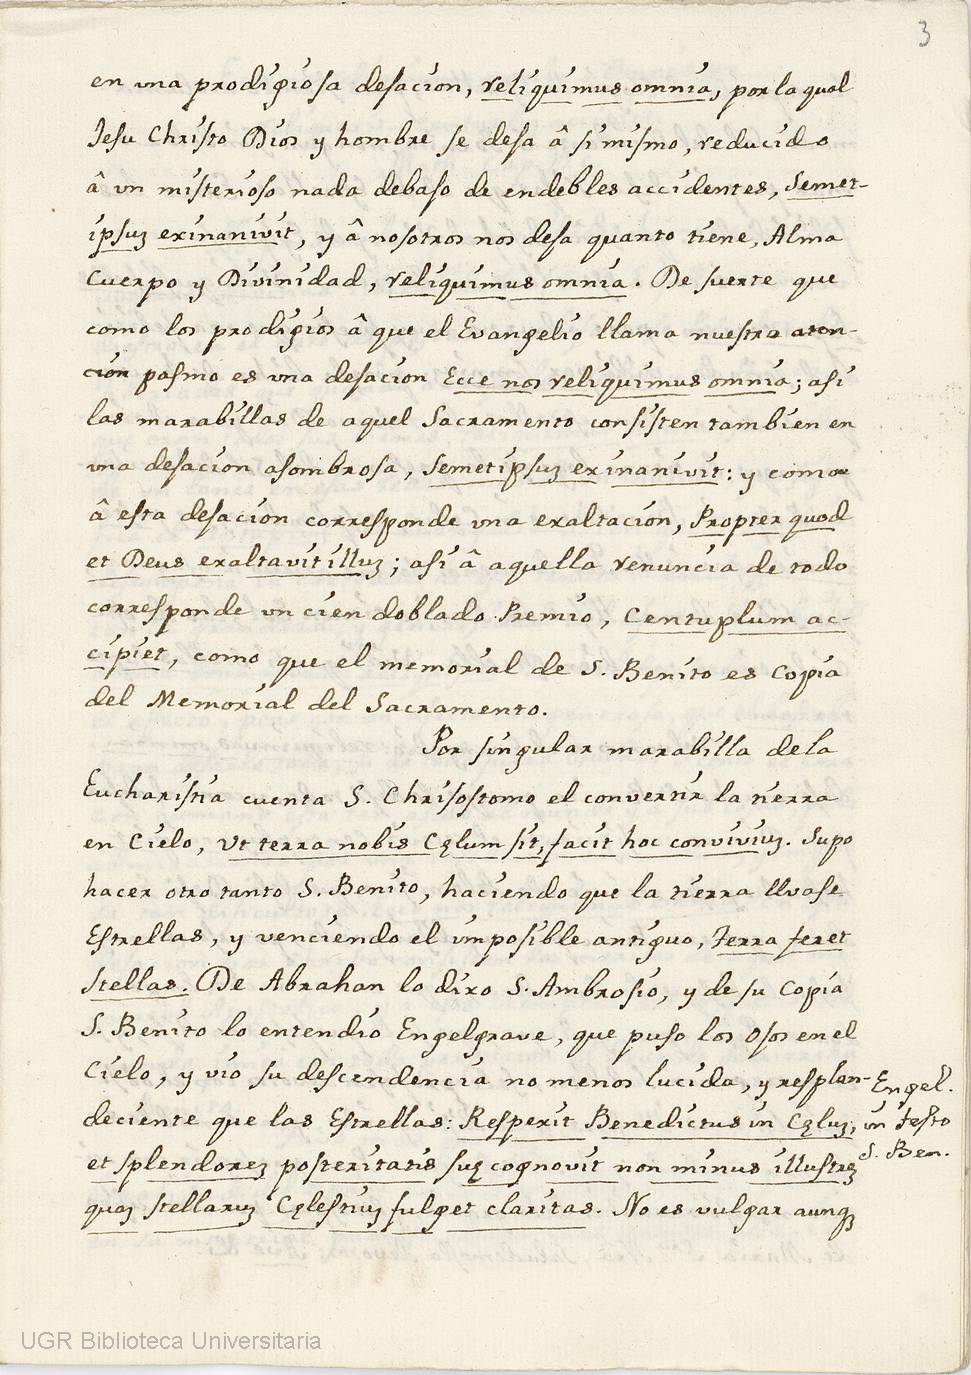 3
en una prodigiosa desacion, reliquimus omnia, por la qual
Jesu Christo Dios y hombre se desa â si mismo, reducido
â un misterioso nada debaso de endebles accidentes, Semet-
ipsuz exinanivit, y â nosotros nos desa quanto tiene, Alma
Cuerpo y Divinidad, reliquimus omnia. De suerte que
como los prodigios â que el Evangelio llama nuestra aten-
cion pasmo es una desacion Ecce nos reliquimus omnia; asi
las marabillas de aquel Sacramento consisten tambien en
una desacion asombrosa, Semetipsuz exinanivit: y como
â esta desacion corresponde una exaltacion, Propter quod
et Deus exaltavit illuz; asi â aquella renuncia de todo
corresponde un cien doblado Premio, Centuplum ac-
cipiet, como que el memorial de S. Benito es Copia
del Memorial del Sacramento.
Por singular marabilla de la
Eucharistia cuenta S. Chrisostomo el convertir la tierra
en Cielo, Ut terra nobis Cęlum sit, facit hoc conviviuz. Supo
hacer otro tanto S. Benito, haciendo que la tierra llvase
Estrellas, y venciendo el imposible antiguo, Terra feret
Stellas. De Abrahan lo dixo S. Ambrosio, y de su Copia
S. Benito lo entendio Engelgrave, que puso los Osos en el
Cielo, y vio su descendencia no menos lucida, y resplan-
deciente que las Estrellas: Resperit Benedictus in Cęluz,
et splendorez posteritatis suę cognovit non minus illustrez
quaz stellaruz Cęlestiuz fulget claritas. No es vulgar aunq̃
Engel.
in festo
S. Ben.
UGR Biblioteca Universitaria